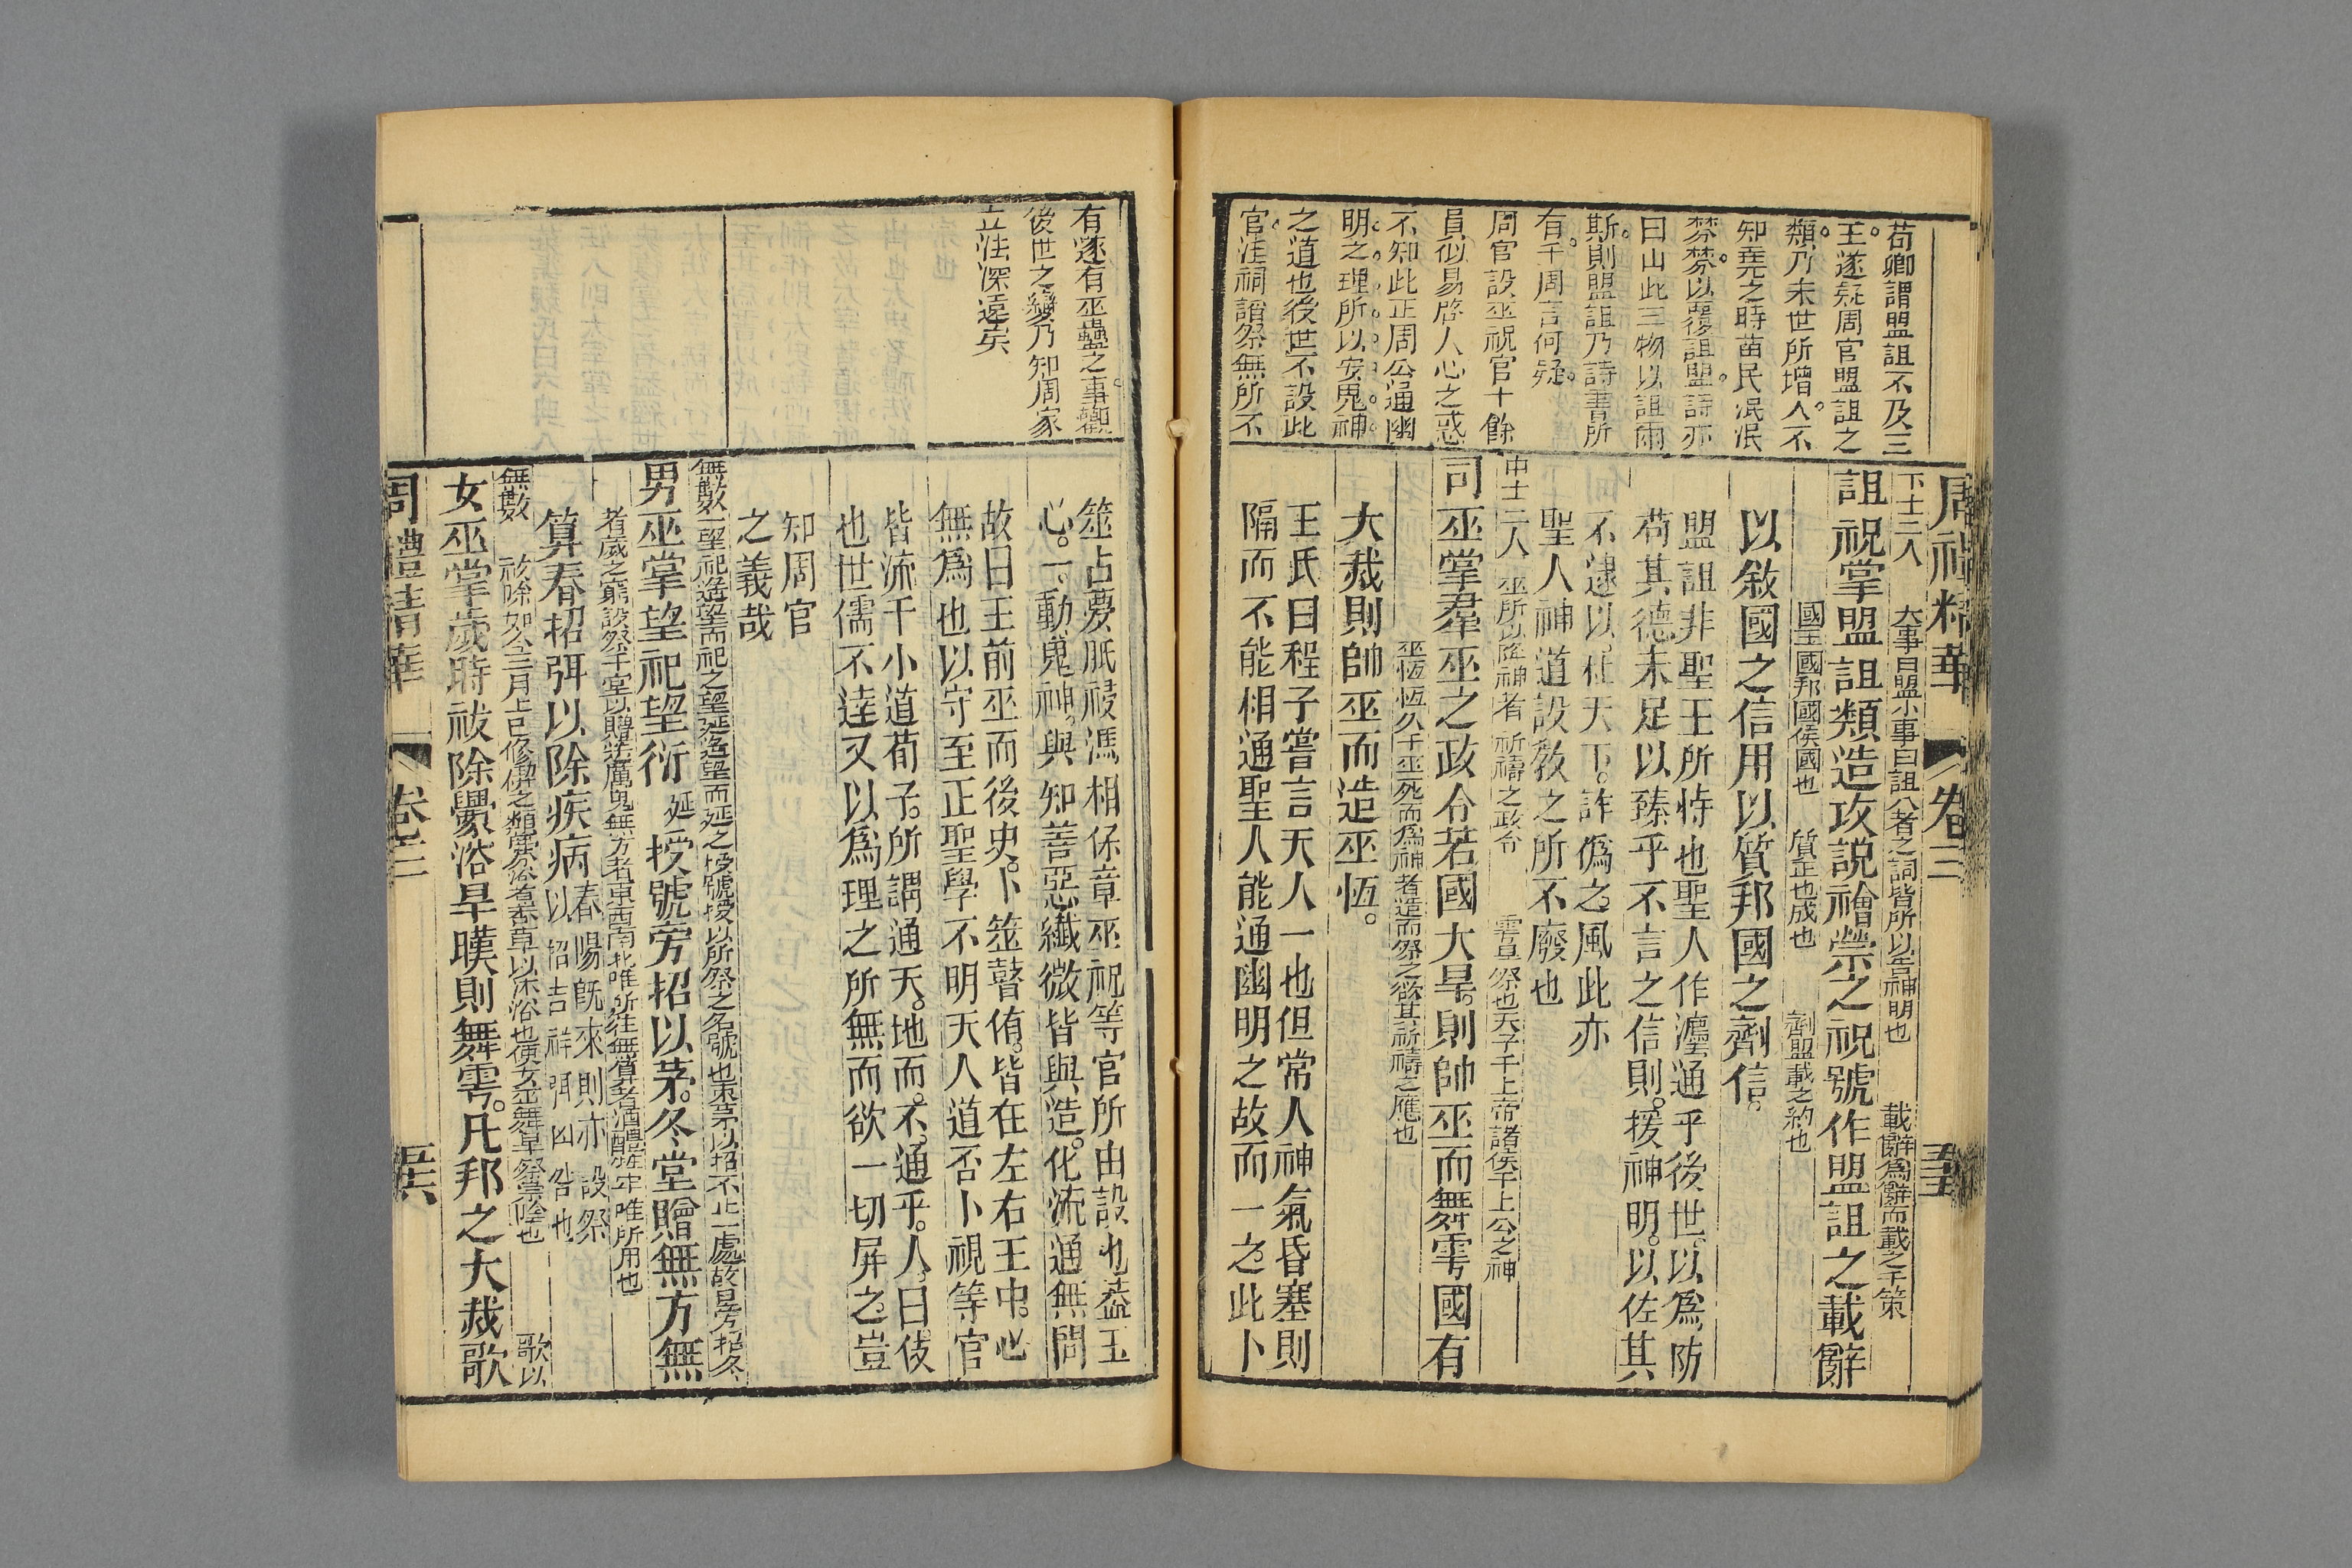 周禮精華
卷三
荀卿謂盟詛不及三
王遂疑周官盟詛之
類乃末世所增人不
知堯之時苗民泯泯
棼棼以覆詛盟詩亦
曰出此三物以詛爾
斯則盟詛乃詩書所
有于周官何疑
周官設巫祝官十餘
員似易啓人心之惑
不知此正周公通幽
明之理所以安鬼神
之道也後世不設此
官淫祠謟祭無所不
下士二人 大事曰盟小事曰詛八者之詞皆所以告神明也 載辭爲辭而載之于策
詛祝掌盟詛類造攻説禬禜之祝號作盟詛之載辭
國王國邦國侯國也 質正也成也 劑盟載之約也
以敘國之信用以質邦國之劑信
盟詛非聖王所恃也聖人作灋通乎後世以爲防
苟其德未足以臻乎不言之信則援神明以佐其
不逮以杜天下詐僞之風此亦
聖人神道設敎之所不廢也
中士二人 巫所以降神者 祈禱之政令 雩旱祭也天子于上帝諸侯于上公之神
司巫掌羣巫之政令若國大旱則帥巫而舞雩國有
巫恆恆久于巫死而爲神者造而祭之欲其祈禱之應也
大烖則帥巫而造巫恆
王氏曰程子嘗言天人一也但常人神氣昏塞則
隔而不能相通聖人能通幽明之故而一之此卜
有遂有巫蠱之事觀
後世之變乃知周家
立法深遠矣
筮占夢眂祲馮相保章巫祝等官所由設也葢王
心一動鬼神與知善惡纖微皆與造化流通無間
故曰王前巫而後史卜筮瞽侑皆在左右王中心
無爲也以守至正聖學不明天人道否卜視等官
皆流于小道荀子所謂通天地而不通乎人曰伎
也世儒不達又以爲理之所無而欲一切屏之豈
知周官
之義哉
無數 望祀遙望而祀之望延遙望而延之授號授以所祭之名號也束茅以招不止一處故曰旁招冬
男巫掌望祀望衍延授號旁招以茅冬堂贈無方無
者歲之窮設祭于堂以贈送厲鬼無方者東西南北唯所往無算者酒醴牲牢唯所用也
算春招弭以除疾病 春陽旣來則亦設祭以招吉祥弭凶咎也
無數 祓除如今三月上巳修禊之類釁浴者香草以沐浴也使女巫舞旱祭崇陰也 歌以
女巫掌歲時祓除釁浴旱暵則舞雩凡邦之大烖歌
周禮精華
卷三